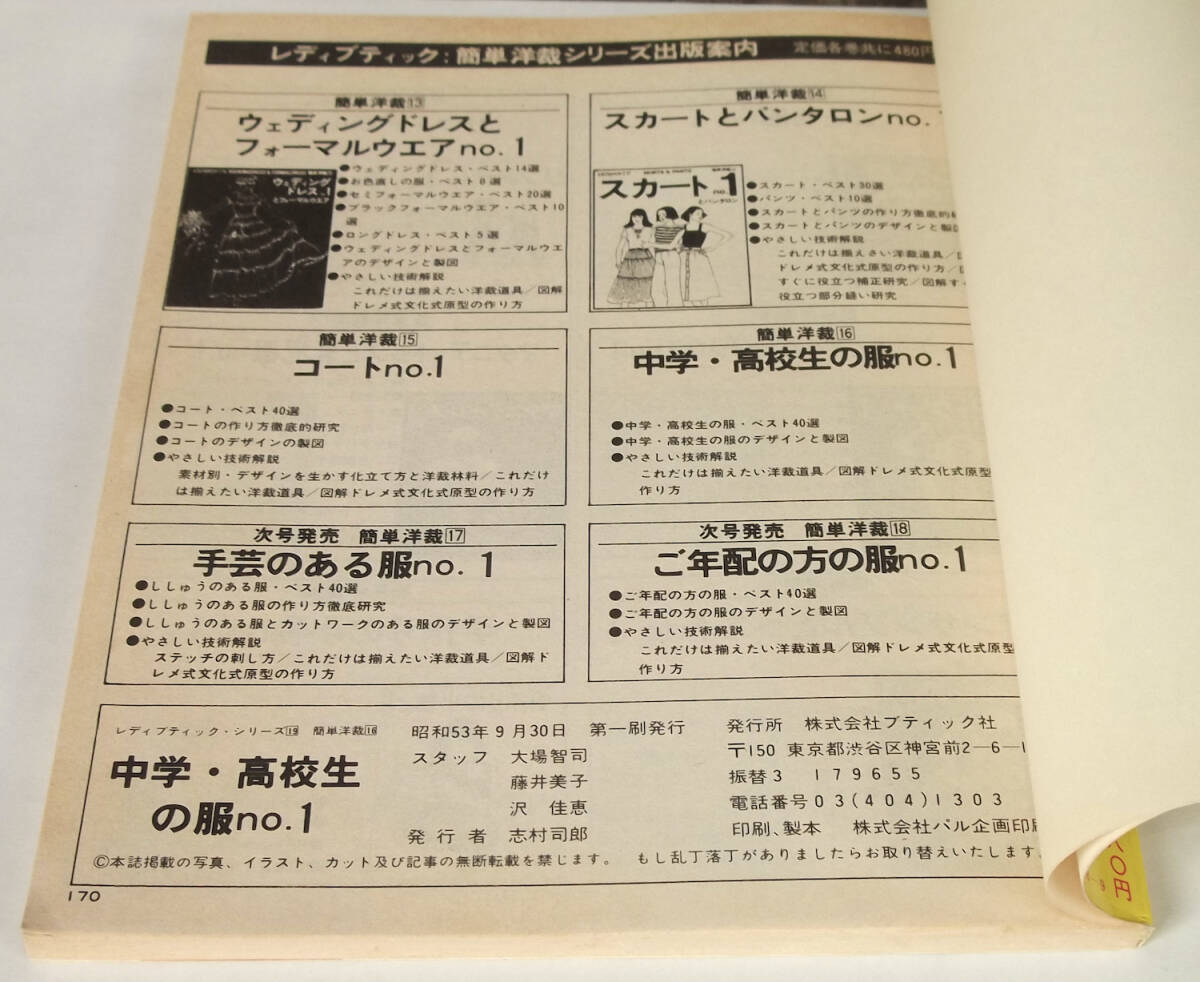 レディブティック:簡単洋裁シリーズ出版案内 定価各巻共に480円
簡単洋裁13
ウェディングドレスと
フォーマルウエアno.1
ウェディング
ドレス no.1
とフォーマルウエア
●ウェディングドレス・ベスト14選
●お色直しの服・ベスト8選
●セミフォーマルウエア・ベスト20選
●ブラックフォーマルウエア・ベスト10
選
●ロングドレス・ベスト5選
●ウェディングドレスとフォーマルウエ
アのデザインと製図
●やさしい技術解説
これだけは揃えたい洋裁道具/図解
ドレメ式文化式原型の作り方
簡単洋裁14
スカートとパンタロンno.
スカート no.1
とパンタロン
●スカート・ベスト30選
●パンツ・ベスト10選
●スカートとパンツの作り方徹底的
●スカートとパンツのデザインと製
●やさしい技術解説
これだけは揃えさい洋裁道具/
ドレメ式文化式原型の作り方/
すぐに役立つ補正研究/図解す
役立つ部分縫い研究
簡単洋裁15
コートno.1
●コート・ベスト40選
●コートの作り方徹底的研究
●コートのデザインの製図
●やさしい技術解説
素材別・デザインを生かす化立て方と洋裁林料/これだけ
は揃えたい洋裁道具/図解ドレメ式文化式原型の作り方
簡単洋裁16
中学・高校生の服no.1
●中学・高校生の服・ベスト40選
●中学・高校生の服のデザインと製図
●やさしい技術解説
これだけは揃えたい洋裁道具/図解ドレメ式文化式原型
作り方
次号発売 簡単洋裁17
手芸のある服no.1
●ししゅうのある服・ベスト40選
●ししゅうのある服の作り方徹底研究
●ししゅうのある服とカットワークのある服のデザインと製図
●やさしい技術解説
ステッチの刺し方/これだけは揃えたい洋裁道具/図解ド
レメ式文化式原型の作り方
次号発売 簡単洋裁18
ご年配の方の服no.1
●ご年配の方の服・ベスト40選
●ご年配の方の服のデザインと製図
●やさしい技術解説
これだけは揃えたい洋裁道具/図解ドレメ式文化式原型
作り方
レディブティック・シリーズ19 簡単洋裁16
中学・高校生
の服no.1
昭和53年9月30日 第一刷発行
スタッフ 大場智司
藤井美子
沢 佳恵
発行者 志村司郎
発行所 株式会社ブティック社
〒150 東京都渋谷区神宮前2-6-1
振替3 179655
電話番号03(404)1303
印刷、製本 株式会社パル企画印刷
©本誌掲載の写真、イラスト、カット及び記事の無断転載を禁じます。 もし乱丁落丁がありましたらお取り替えいたします。
170
0円